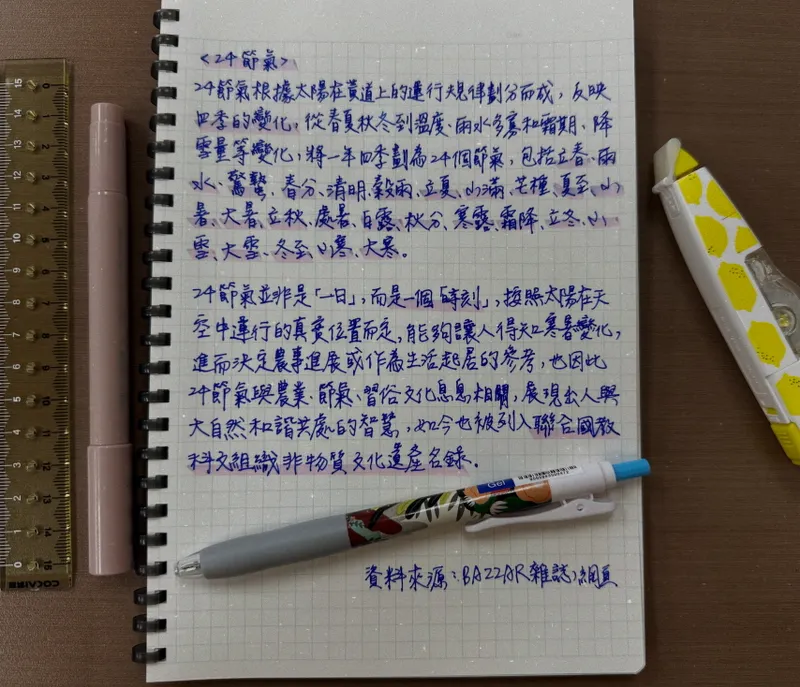 <24節氣>
24節氣根據太陽在黃道上的運行規律劃分而成，反映
四季的變化，從春夏秋冬到溫度、雨水多寡和霜期、降
雪量等變化，將一年四季劃為24個節氣，包括立春、雨
水、驚蟄、春分、清明、穀雨、立夏、小滿、芒種、夏至、小
暑、大暑、立秋、處暑、白露、秋分、寒露、霜降、立冬、小
雪、大雪、冬至、小寒、大寒。
24節氣並非是「一日」，而是一個「時刻」，按照太陽在天
空中運行的真實位置而定，能夠讓人得知寒暑變化，
進而決定農事進展或作為生活起居的參考，也因此
24節氣與農業、節氣、習俗文化息息相關，展現出人與
大自然和諧共處的智慧，如今也被列入聯合國教
科文組織非物質文化遺產名錄。
資料來源：BAZZAR雜誌網頁
Gel
15 14 13 12 11 10 9 8 7 6 5 4 3 2 1 0
0 1 2 3 4 5 6 7 8 9 10 11 12 13 14 15